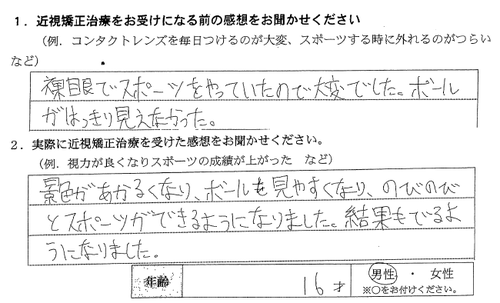 1．近視矯正治療をお受けになる前の感想をお聞かせください
（例．コンタクトレンズを毎日つけるのが大変、スポーツする時に外れるのがつらい
など）
裸眼でスポーツをやっていたので大変でした。ボール
がはっきり見えなかった。
2．実際に近視矯正治療を受けた感想をお聞かせください。
（例．視力が良くなりスポーツの成績が上がった　など）
景色があかるくなり、ボールも見やすくなり、のびのび
とスポーツができるようになりました。結果もでるよ
うになりました。
年齢　16才　男性・女性
※○をお付けください。